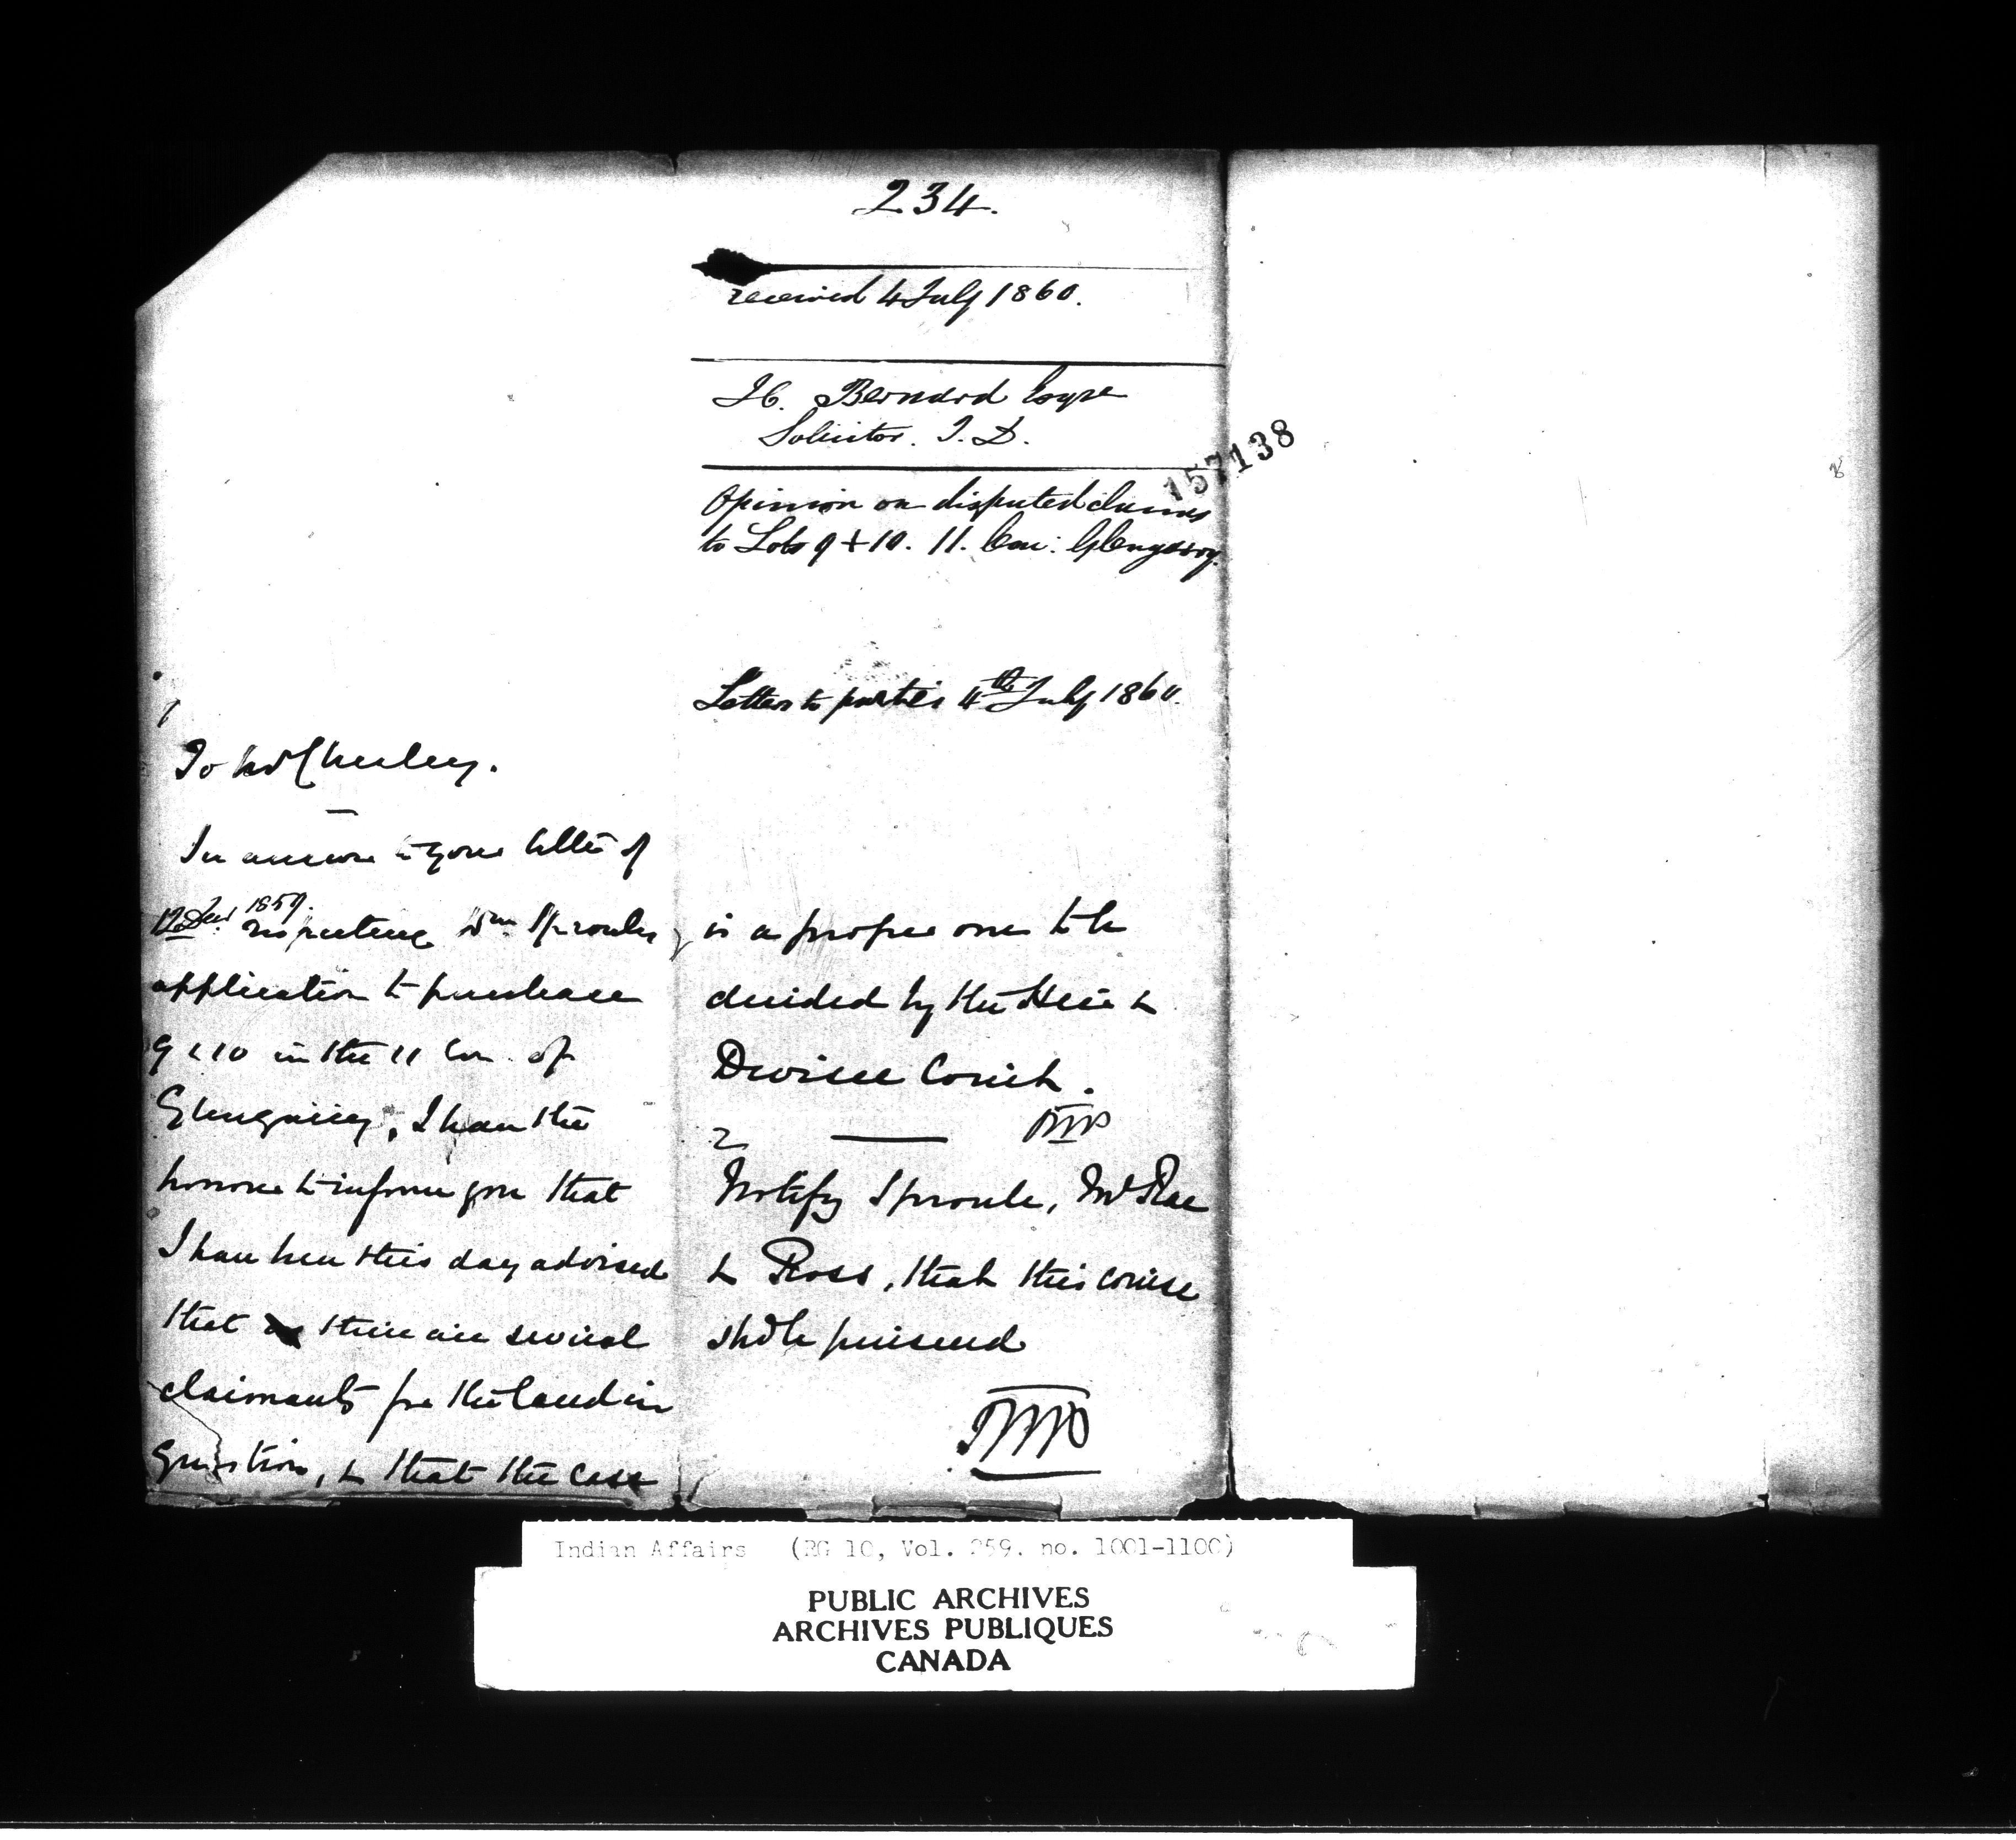 234.
received 4 July 1860.
H. Bernard Esqre
Solicitor. I. D.
157138
Opinion on disputed claims
to Lots 9 + 10. 11. Con: Glengarry.
Letters to parties 4th July 1860.
1
To
In answer to your letter of
12 Decr 1859.
respecting Wm Sproule's
application to purchase
9 & 10 in the 11 Con. of
Glengarry, I have the
honour to inform you that
I have been this day advised
that there are several
claimants for the land in
question, & that the case
is a proper one to be
decided by the Heir &
Devisee Court.
2
Notify Sproule, McRae
& Ross, that this course
shd be pursued
Indian Affairs (RG 10, Vol. 259. no. 1001-1100)
PUBLIC ARCHIVES
ARCHIVES PUBLIQUES
CANADA